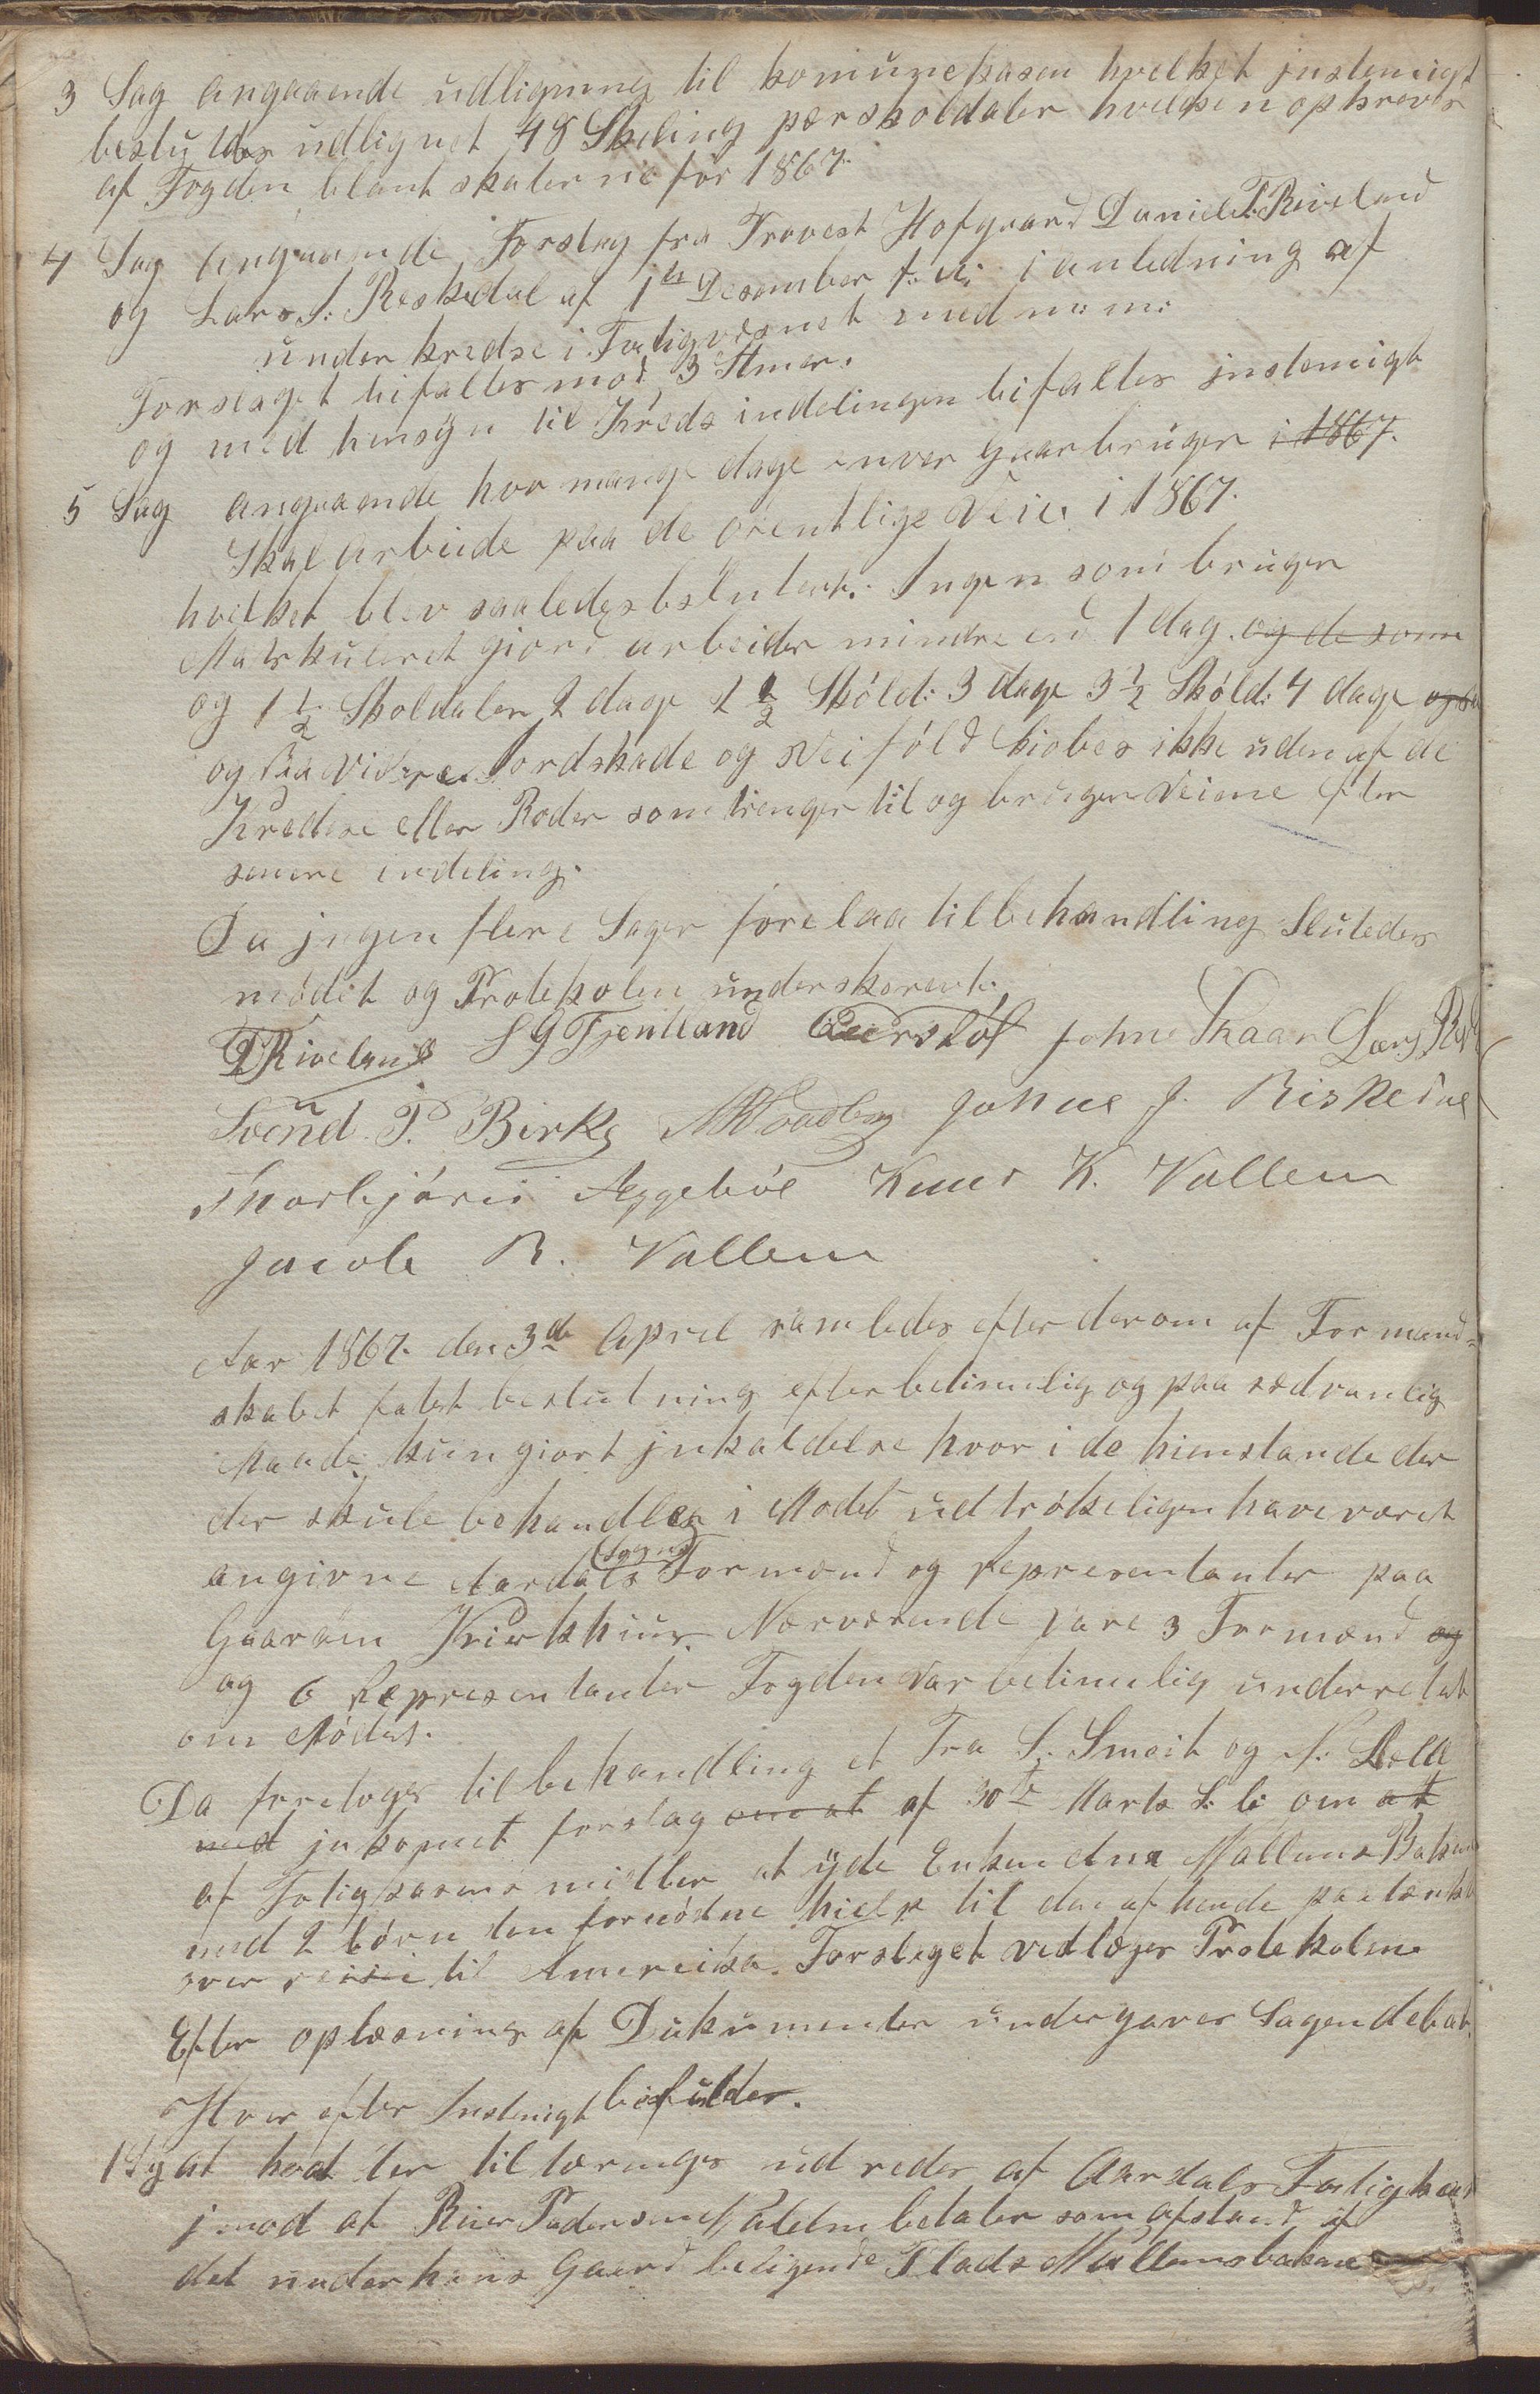 3 Sag angaaende udligning til komunekasen hvelket jnstemigt
besluttdes udlignet 48 Skeling pær skoldaler hvelken opkreves
af Fogden blant skaterne for 1867.
4 Sag angaaende Forslag fra Provest Hofgaard Daniel T. Riveland
og Lars J. Reskedal af 1ste Desember f. a. i anledning af
underkredse i Fatigvesnet med m: m:
Forslaget bifaltes mod 3 Stmer.
og med hensyn til Kreds indelingen bifaltes jnstemigt
5 Sag angaaende hvor mange dage enver gaarbruger i 1867.
Skal arbeide paa de orentlige Veie i 1867.
hvelket blev saaledes bsluttent: Ingen som bruger
Matrkuleret giord arbeider mindre end 1 dag. og de som
og 1 1/2 Skoldaler 2 dage 2 1/2 Skóld: 3 dage 3 1/2 Skóld: 4 dage og sa
og saa Videre Jordskade og Veifóld kiobes ikke uden af de
Kredse eller Roder som trenger til og bruger Veiene efter
senere indeling.
Da jngen flere Sager forelaa til behandling Sluteder
módet og Protekolen underskrevet.
D Riveland S G Tjentland Geersløf John Skaar Lars Resk
Svend P. Birke Johne J. Riskedal
Thorbjórn Aggebóe Knud K. Vallem
Jacob R. Vallem
Aar 1867. den 3de April samledes efter derom af Formand-
skabet fatet beslutning efter betimelig og paa sedvanlig
Maade kungiort jnkaldelse hvor i de hienstande der
der skule behandles i Modet udtrókeligen have været
angivne Aardals (Sogns) Formænd og Representanter paa
Gaarden Kirkhuus. Nærværende vare 3 Formænd og
og 6 Representanter Fogden var betimelig underretet
om Módet.
Da foretoges til behandling et Fra S. Smeit og S.
med jnkomet forslag om at af 30te Marts d: å: om at
af Fatigkasens midler at yde Enken Mallums Baken
med 2 bórn den fornódne hielp til den af hende paatænkte
over reise til Amereika. Forslaget vedlæges Protekolen
Efter oplæsning af Dukumenter undergaves Sagen debat.
Hvor efter Instemigt besluttdes.
1 Sg at hvad der til trænges udredes af Aardals Fatigkase
jmod at Riier Pedersen betaler som afstand af
det under hans Gaard beligende Plads Mallumsbaken